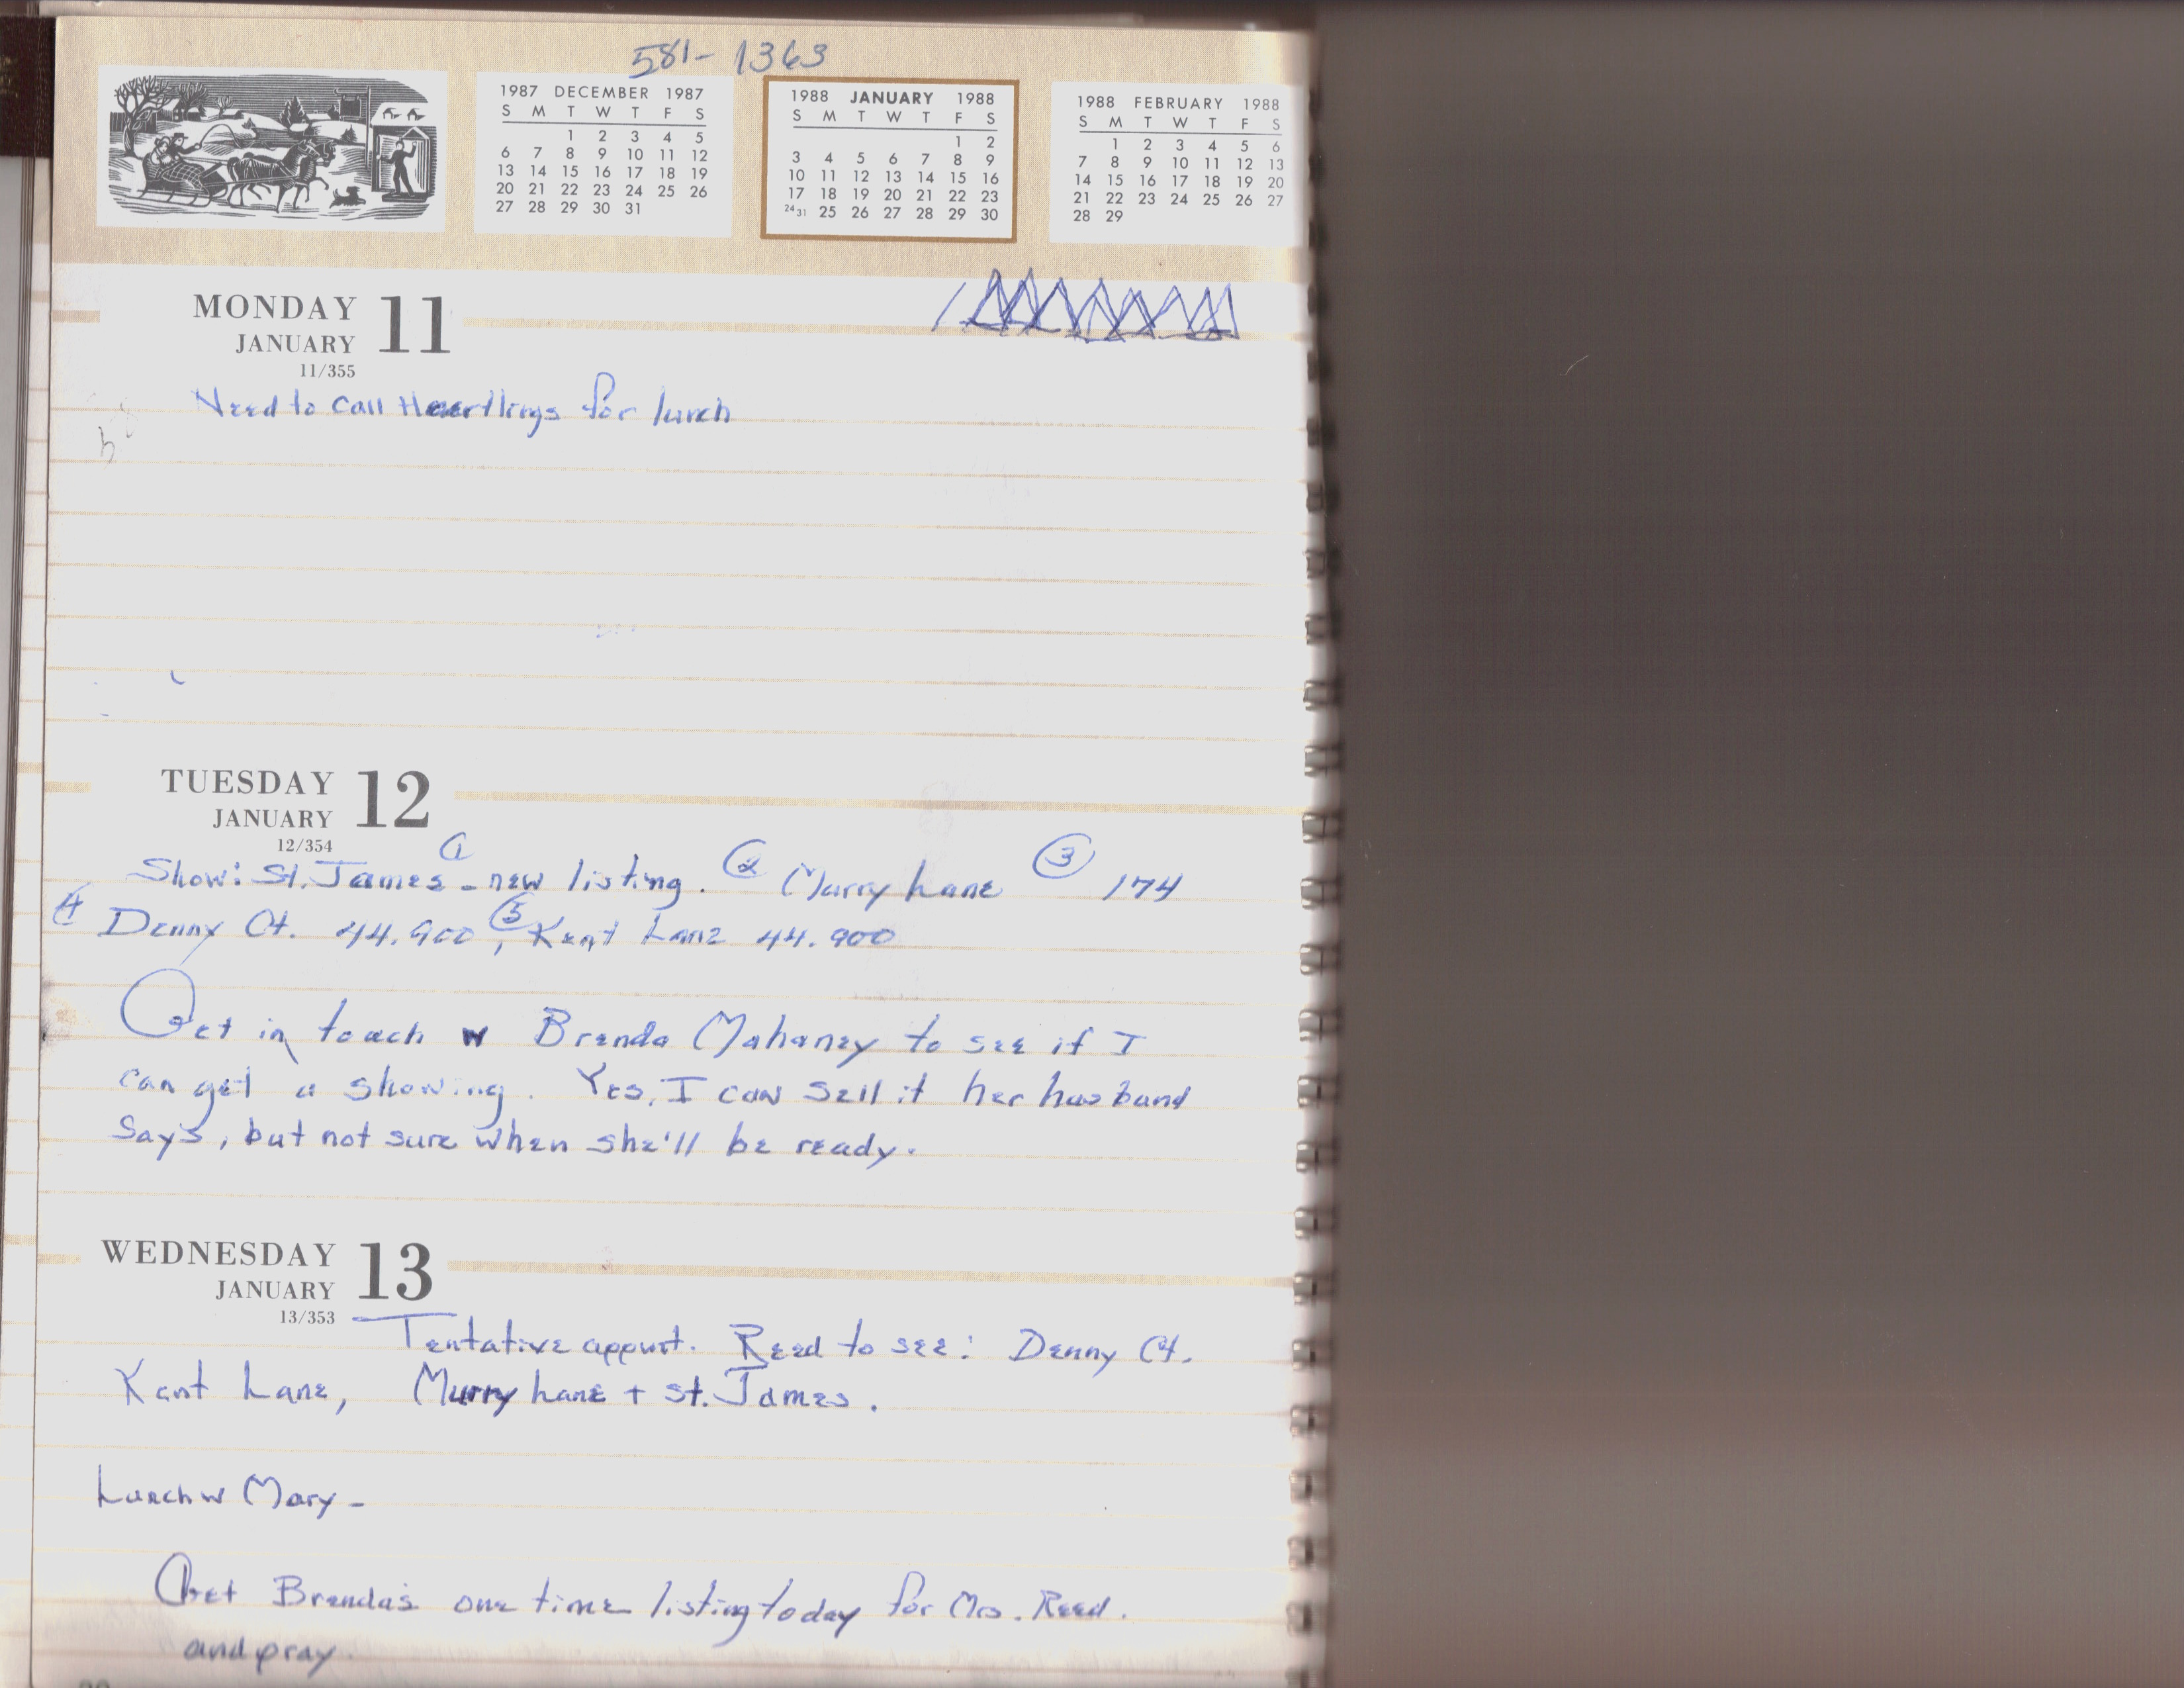 581-1363
1987 DECEMBER 1987
S M T W T F S
1 2 3 4 5
6 7 8 9 10 11 12
13 14 15 16 17 18 19
20 21 22 23 24 25 26
27 28 29 30 31
1988 JANUARY 1988
S M T W T F S
1 2
3 4 5 6 7 8 9
10 11 12 13 14 15 16
17 18 19 20 21 22 23
24 31 25 26 27 28 29 30
1988 FEBRUARY 1988
S M T W T F S
1 2 3 4 5 6
7 8 9 10 11 12 13
14 15 16 17 18 19 20
21 22 23 24 25 26 27
28 29
MONDAY 11
JANUARY
11/355
Need to call for lunch
TUESDAY 12
JANUARY
12/354
1 2 3
Show: St. James - new listing. Murry Lane 174
4 Denny Ct. 44.900, 5 Kent Lane 44.900
Get in touch w Brenda Mahaney to see if I
can get a showing. Yes, I can sell it her husband
says, but not sure when she'll be ready.
WEDNESDAY 13
JANUARY
13/353
Tentative appunt. Reed to see: Denny Ct.
Kent Lane, Murry Lane + St. James.
Lunch w Mary -
Get Brenda's one time listing today for Mrs. Reed.
and pray.